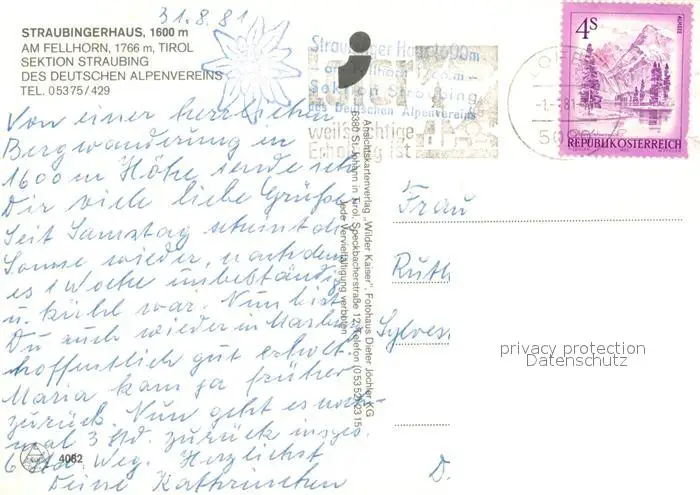 31.8.81
STRAUBINGERHAUS, 1600 m
AM FELLHORN, 1766 m, TIROL
SEKTION STRAUBING
DES DEUTSCHEN ALPENVEREINS
TEL. 05375/429
Straubinger Haus 1600m
am Fellhorn
Sektion Straubing
des Deutschen Alpenvereins
weil richtige
Erholung ist
4S
REPUBLIK ÖSTERREICH
Von einer herrlichen
Bergwanderung in
1600 m Höhe sende ich
Dir viele liebe Grüße.
Seit Samstag scheint die
Sonne wieder, nachdem
es 1 Woche unbeständig
u. kühl war. Nun bist
Du auch wieder in
hoffentlich gut erholt.
Maria kam ja früher
zurück. Nun geht es noch-
mal 3 Std. zurück insges.
6 Std. Weg. Herzlichst
Deine Kathrinchen
4062
Ansichtskartenverlag „Wilder Kaiser", Fotohaus Dieter Jöchler KG
6380 St. Johann in Tirol, Speckbacherstraße 12, Telefon (05352) 2315
Jede Vervielfältigung verboten
Frau
Ruth
Sylves
D.
privacy protection
Datenschutz